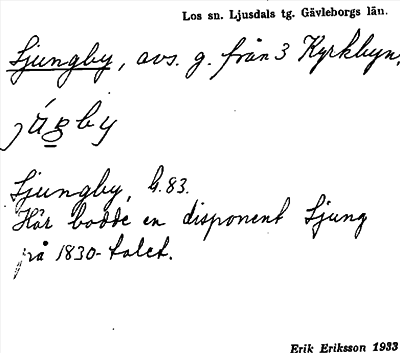 Los sn. Ljusdals tg. Gävleborgs län.
Ljungby, avs. g. från 3 Kyrkbyn.
Ljungby, b. 83.
Här bodde en disponent Ljung
på 1830-talet.
Erik Eriksson 1933